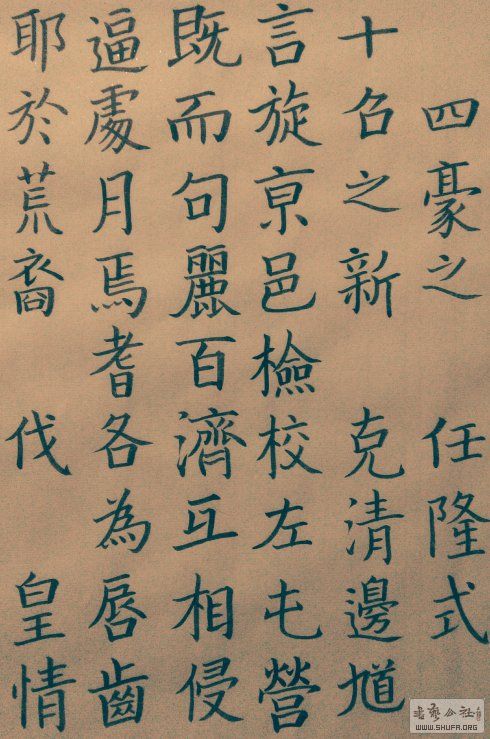 四豪之 任隆式
十之新 克清邊
言旋亰邑檢校左屯營
既而句麗百濟互相侵
逼處月焉耆各為唇齒
耶於荒裔 伐 皇情
書藝公社
WWW.SHUFA.ORG